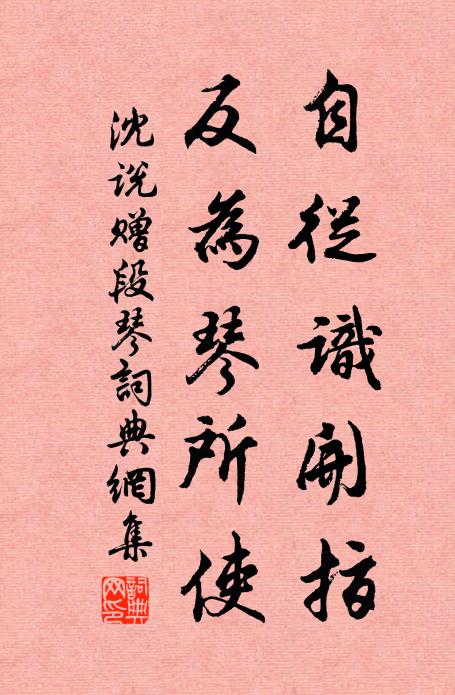 自從識開指
反為琴所使
沈說贈段琴詞典網集
詞典網印